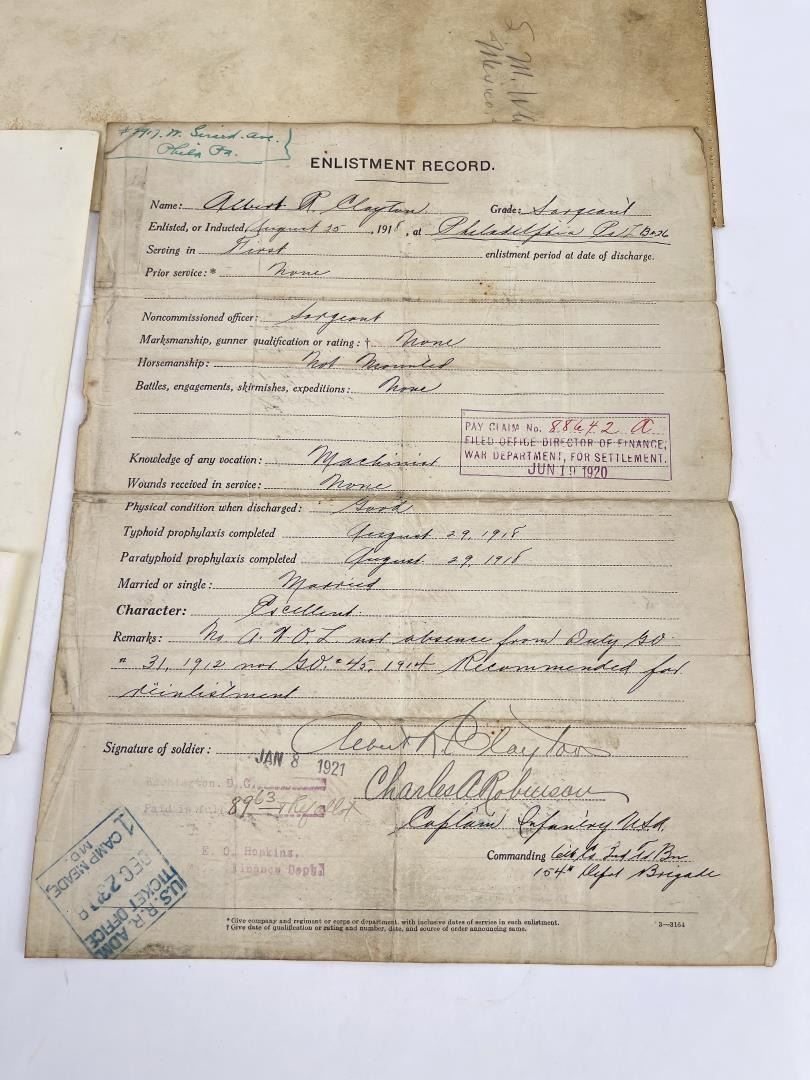 S. M.
Mexico
W. Girard. Ave.
Phila Pa.
ENLISTMENT RECORD.
Name: Albert R. Clayton Grade: Sargeant
Enlisted, or Inducted, August 25, 1918, at Philadelphia Pa.
Serving in First enlistment period at date of discharge.
Prior service:* None
Noncommissioned officer: Sargeant
Marksmanship, gunner qualification or rating: † None
Horsemanship: Not Mounted
Battles, engagements, skirmishes, expeditions: None
PAY CLAIM No. 88642 A
FILED OFFICE DIRECTOR OF FINANCE,
WAR DEPARTMENT, FOR SETTLEMENT.
JUN 19 1920
Knowledge of any vocation: Machinist
Wounds received in service: None
Physical condition when discharged: Good
Typhoid prophylaxis completed August 29, 1918
Paratyphoid prophylaxis completed August 29, 1918
Married or single: Married
Character: Excellent
Remarks: No A.W.O.L nor absence from Duty GO
" 31, 1912 nor GO. #45, 1914 Recommended for
reinlistment
Signature of soldier: Albert R. Clayton
JAN 8 1921
Washington, D.C.
Paid in Full
8963
E. O. Hopkins,
Finance Dept.
Charles A Robinson
Captain Infantry U.S.A.
Commanding 6th Co 2nd Tr Bn
154" Depot Brigade
U.S. R.R. ADM
TICKET OFFICE
DEC 23 18
1 CAMP MEADE,
MD.
*Give company and regiment or corps or department, with inclusive dates of service in each enlistment.
†Give date of qualification or rating and number, date, and source of order announcing same.
3—3164